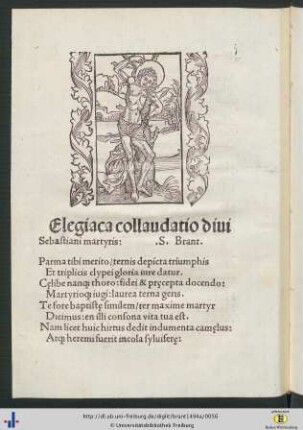 Elegiaca collaudatio diui
Sebastiani martyris: .S. Brant.
Parma tibi merito/ternis depicta triumphis
Et triplicis clypei gloria iure datur.
Cęlibe nanqꝫ thoro: fidei & pręcepta docendo:
Martyrioqꝫ iugi: laurea terna gens.
Te fore baptistę similem/ter maxime martyr
Dicimus: en illi consona vita tua est.
Nam licet huic hirtus dedit indumenta camęlus:
Atqꝫ heremi fuerit incola syluifetę:
http://dl.ub.uni-freiburg.de/diglit/brant1494a/0056
© Universitätsbibliothek Freiburg